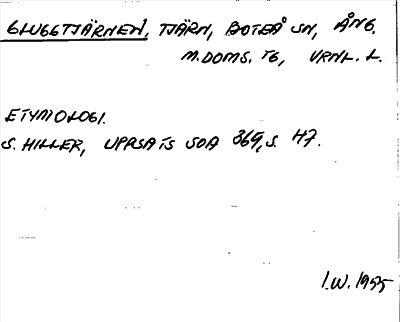 GLUGGTJÄRNEN, TJÄRN, BOTEÅ SN, ÅNG.
M.DOMS. TG, VRNL. L.
ETYMOLOGI.
S. HILLER, UPPSATS SOA 369, S. 47.
I.W. 1955